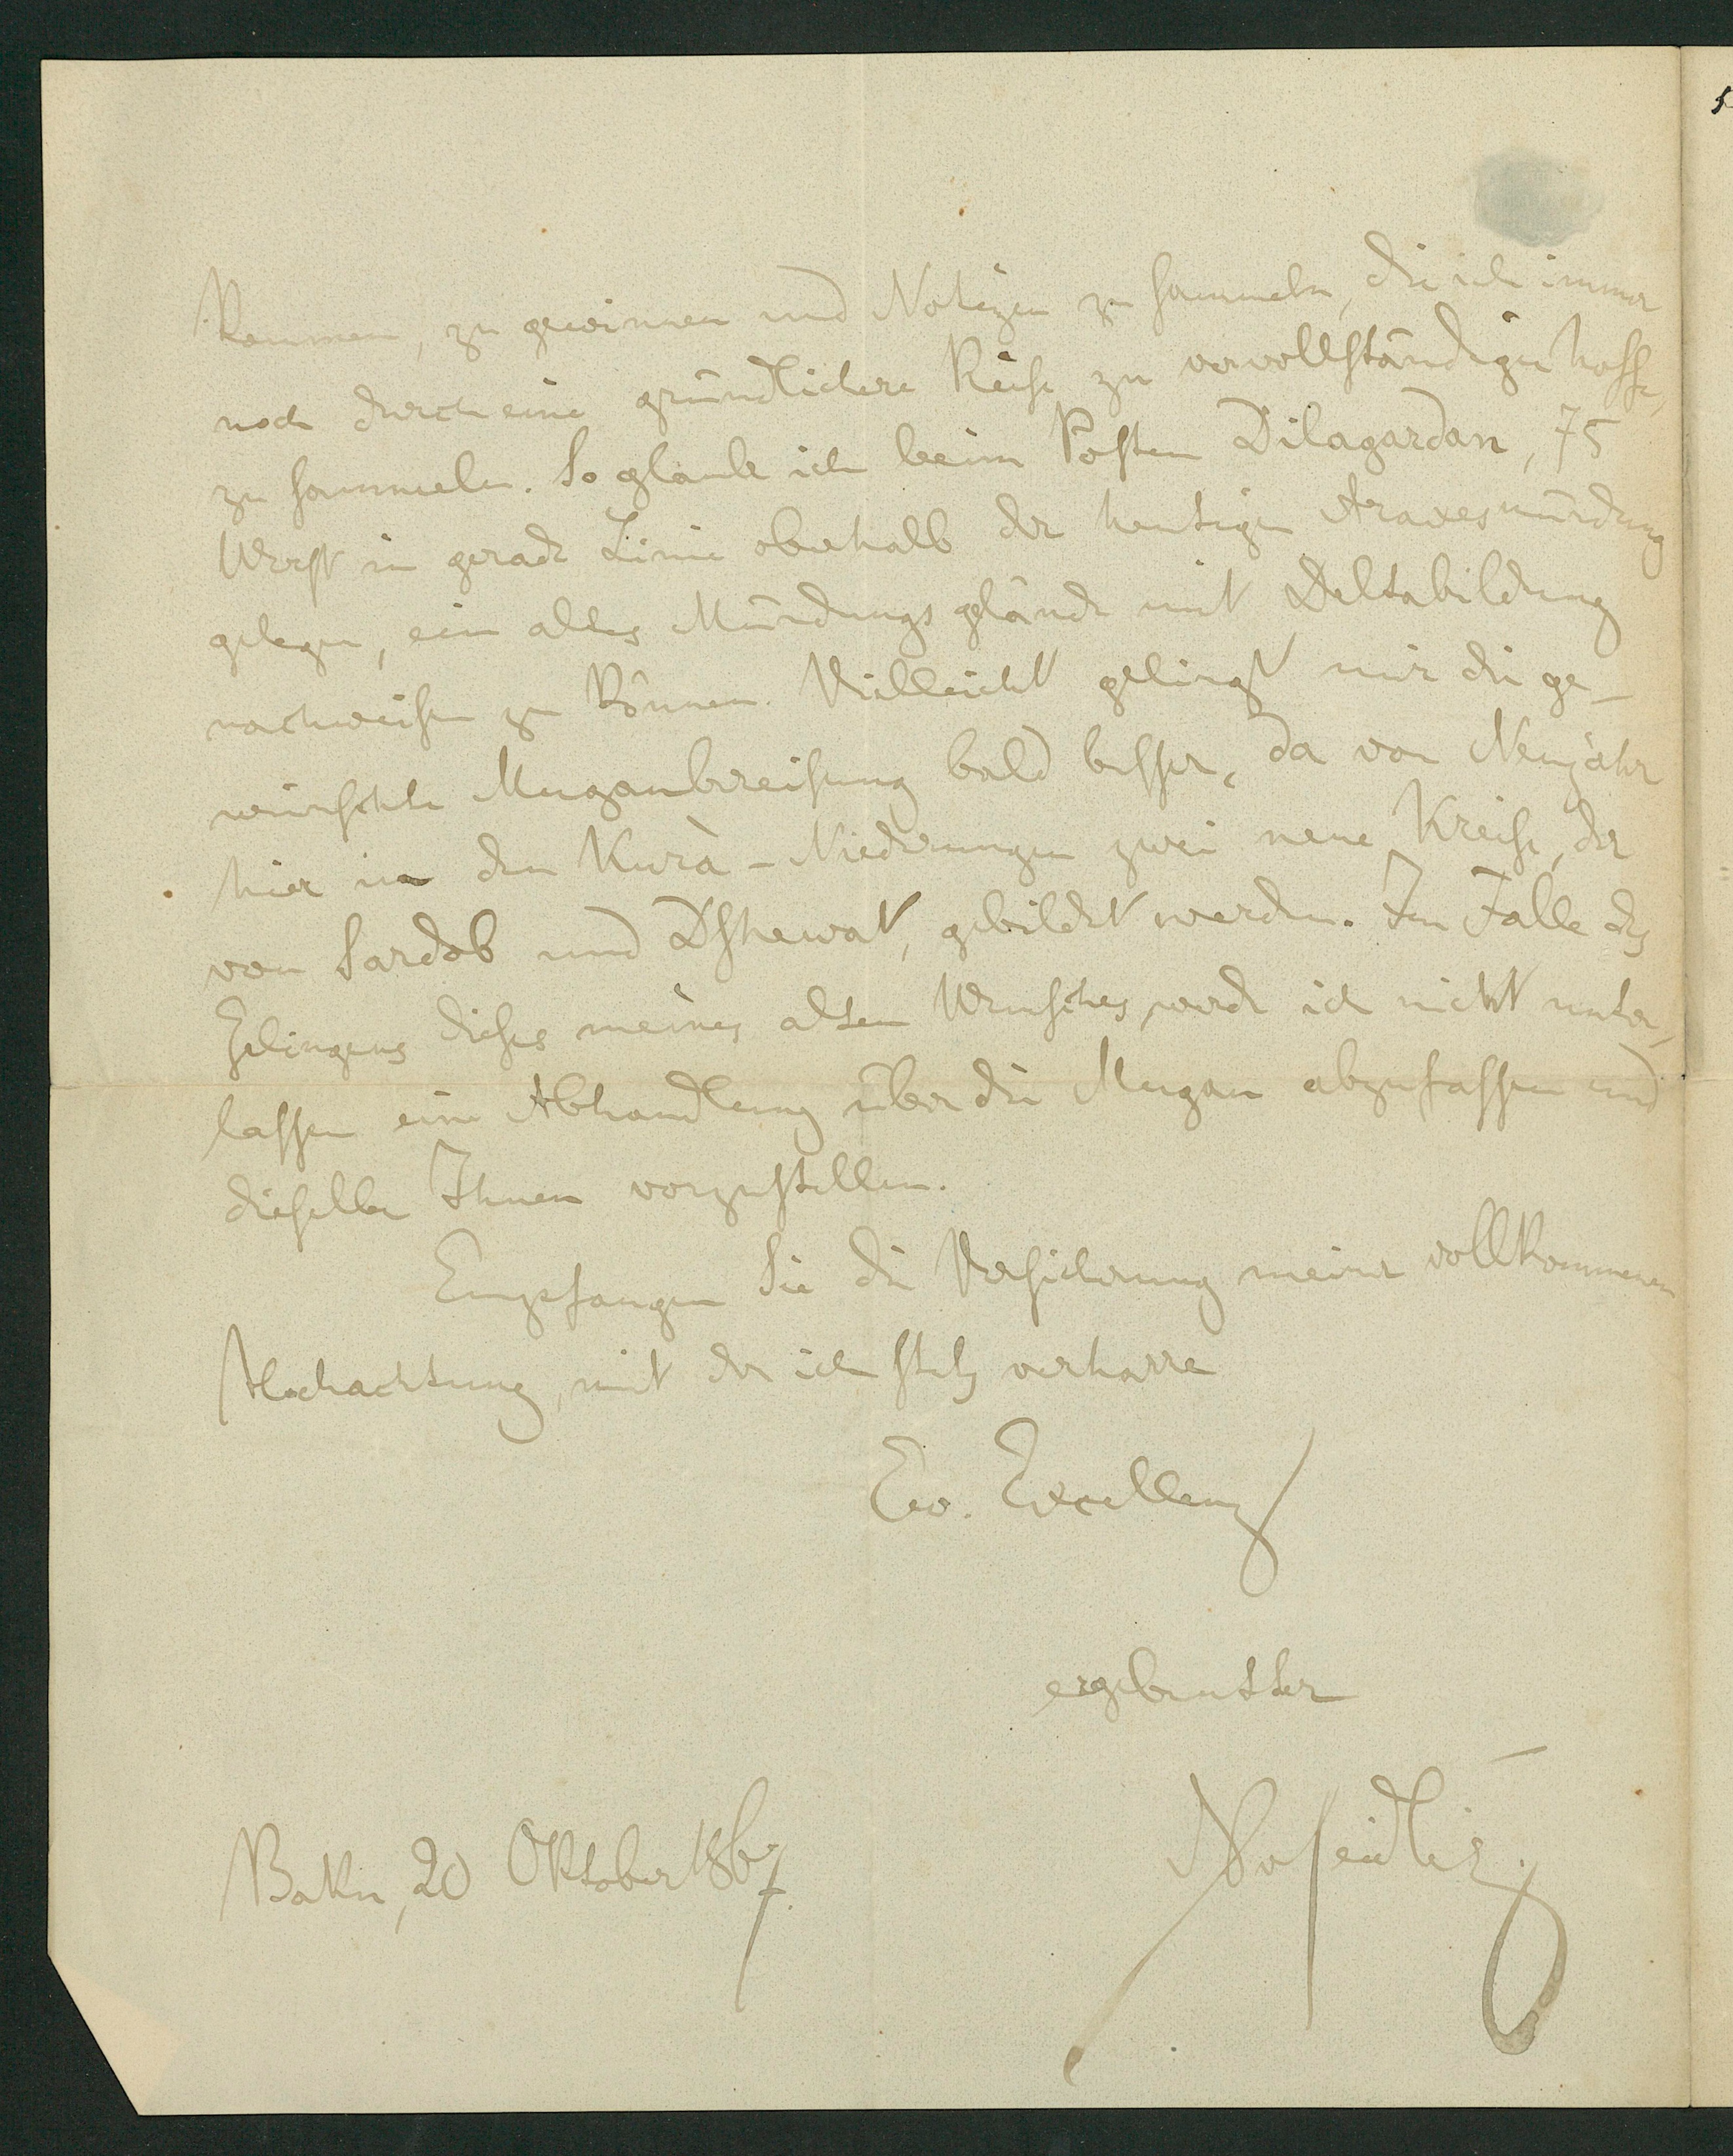 kommen, zu gewinnen und Notizen zu sammeln, die ich immer
noch durch eine gründlichere Reise zu vervollständigen hoffe,
zu sammeln. So glaube ich beim Posten Dilagardan, 75
Werst in gerade Linie oberhalb der heutigen Araxesmündung
gelegen, ein altes Mündungsgelände mit Deltabildung
nachweisen zu können. Vielleicht gelingt mir die ge-
wünschte Muganbereisung bald besser, da von Neujahr
hier in den Kurà-Niederungen zwei neue Kreise, der
von Sardob und Dshewat, gebildet werden. Im Falle des
Gelingens dieses meines alten Wunsches werde ich nicht unter-
lassen eine Abhandlung über die Mugan abzufassen und
dieselbe Ihnen vorzustellen.
Empfangen Sie die Versicherung meiner vollkommenen
Hochachtung, mit der ich stets verharre
Ew. Excellenz
ergebenster
NvSeidlitz
Baku, 20 Oktober 1867.